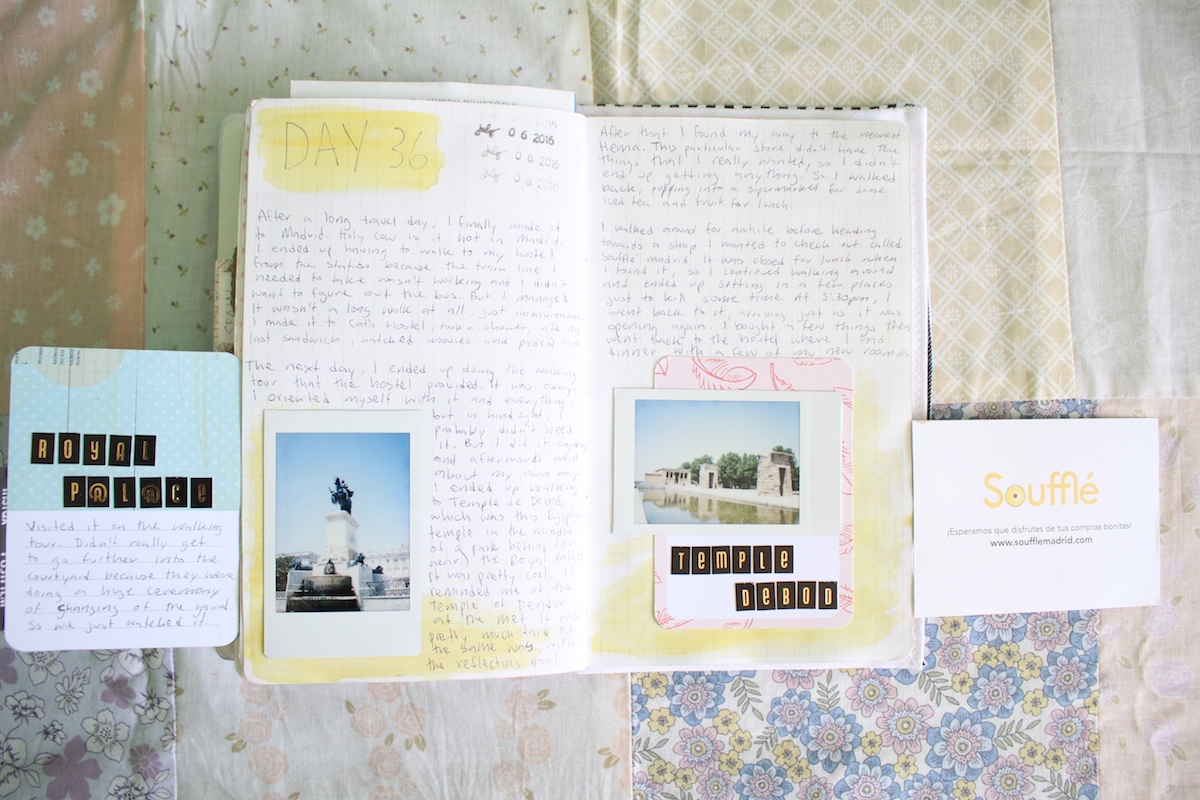 DAY 36
July 06 2016
July 06 2016
July 06 2016
After a long travel day, I finally made it
to Madrid. Holy cow is it hot in Madrid.
I ended up having to walk to my hostel
from the station because the train line I
needed to take wasn't working and I didn't
want to figure out the bus. But I managed
It wasn't a long walk at all, just inconvenient.
I made it to Cat's Hostel, took a shower, ate my
last sandwich, watched movies and
The next day, I ended up doing the walking
tour that the hostel provided. It was okay.
I oriented myself with it and everything,
but in hindsight, I
probably didn't need
it. But I did it anyway
and afterwards went
about my own way.
I ended up walking
to Temple de Debod,
which was this Egyptian
temple in the middle
of a park behind (or
near) the Royal Palace.
It was pretty cool. It
reminded me of the
Temple of Dendur
at the Met. It was
pretty much laid out
the same way, with
the reflecting pool.
After that I found my way to the nearest
Hema. This particular store didn't have the
things that I really wanted, so I didn't
end up getting anything. So I walked
back, popping into a supermarket for some
iced tea and fruit for lunch.
I walked around for awhile before heading
towards a shop I wanted to check out called
Souffle Madrid. It was closed for lunch when
I found it, so I continued walking around
and ended up sitting in a few places
just to kill some time. At 5:30pm, I
went back to it, arriving just as it was
opening again. I bought a few things then
went back to the hostel where I had
dinner with a few of my new roomies
ROYAL
P@L@CE
Visited it on the walking
tour. Didn't really get
to go further into the
courtyard because they were
doing a huge ceremony
of changing of the guard
so we just watched it.
TEMPLE
DEBOD
Soufflé
¡Esperamos que disfrutes de tus compras bonitas!
www.soufflemadrid.com